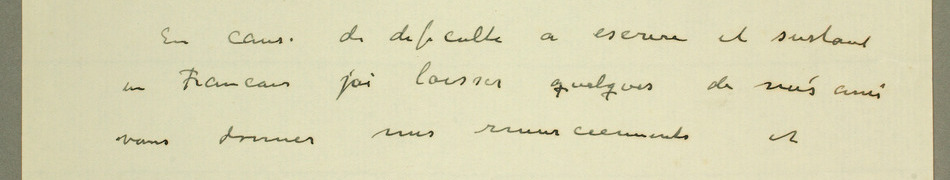 En cause de deficulte a escrire et surtout
en Francais j'ai laisser quelques de mes amis
vous donner mes remerciements et